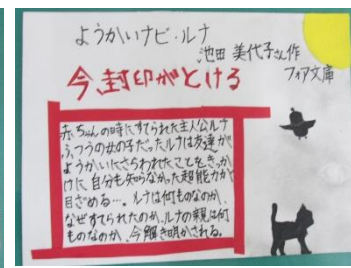 ようかいナビ・ルナ
池田 美代子さん作
フォア文庫
今、封印がとける
赤ちゃんの時にすてられた主人公ルナ
ふつうの女の子だったルナは友達が
ようかいにさらわれたことをきっか
けに、自分も知らなかった超能力が
目ざめる…。ルナは何ものなのか、
なぜすてられたのか、ルナの親は何
ものなのか、今解き明かされる。